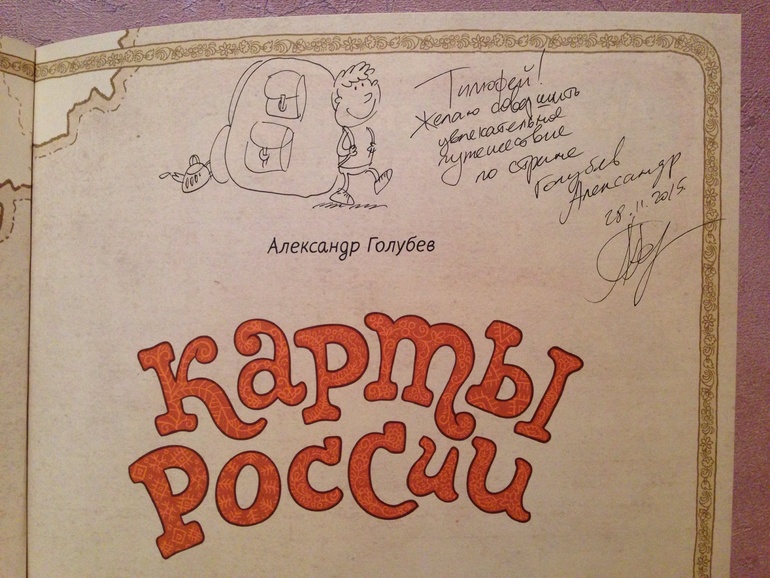 Тимофей!
Желаю совершить
увлекательное
путешествие
по стране
Голубев
Александр
28.11.2015.
Александр Голубев
Карты
России